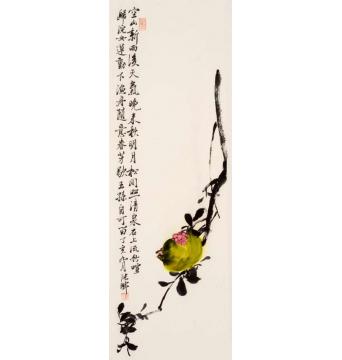 空山新雨後天氣晚來秋明月松間照清泉石上流竹喧
歸浣女蓮動下漁舟隨意春芳歇王孫自可留丁亥九月